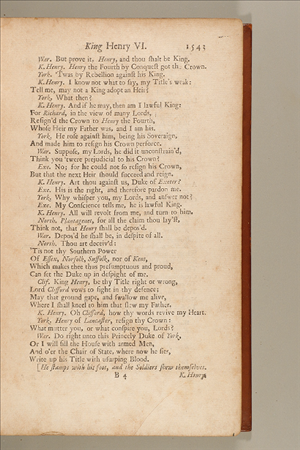 King Henry VI. 1543
War. But prove it, Henry, and thou shalt be King.
K. Henry. Henry the Fourth by Conquest got th. Crown.
York. 'Twas by Rebellion against his King.
K. Henry. I know not what to say, my Title's weak:
Tell me, may not a King adopt an Heir?
York. What then?
K. Henry. And if he may, then am I lawful King:
For Richard, in the view of many Lords,
Resign'd the Crown to Henry the Fourth,
Whose Heir my Father was, and I am his.
York. He rose against him, being his Soveraign,
And made him to resign his Crown perforce.
War. Suppose, my Lords, he did it unconstrain'd,
Think you 'twere prejudicial to his Crown?
Exe. No; for he could not so resign his Crown,
But that the next Heir should succeed and reign.
K. Henry. Art thou against us, Duke of Exeter?
Exe. His is the right, and therefore pardon me.
York. Why whisper you, my Lords, and answer not?
Exe. My Conscience tells me, he is lawful King.
K. Henry. All will revolt from me, and turn to him.
North. Plantagenet, for all the claim thou lay'st,
Think not, that Henry shall be depos'd.
War. Depos'd he shall be, in despite of all.
North. Thou art deceiv'd:
'Tis not thy Southern Power
Of Essex, Norfolk, Suffolk, nor of Kent,
Which makes thee thus presumptuous and proud,
Can set the Duke up in despight of me.
Clif. King Henry, be thy Title right or wrong,
Lord Clifford vows to fight in thy defence:
May that ground gape, and swallow me alive,
Where I shall kneel to him that slew my Father.
K. Henry. Oh Clifford, how thy words revive my Heart.
York. Henry of Lancaster, resign thy Crown:
What mutter you, or what conspire you, Lords?
War. Do right unto this Princely Duke of York,
Or I will fill the House with armed Men,
And o'er the Chair of State, where now he sits,
Write up his Title with usurping Blood.
[He stamps with his foot, and the Soldiers shew themselves.
B 4 K. Henry